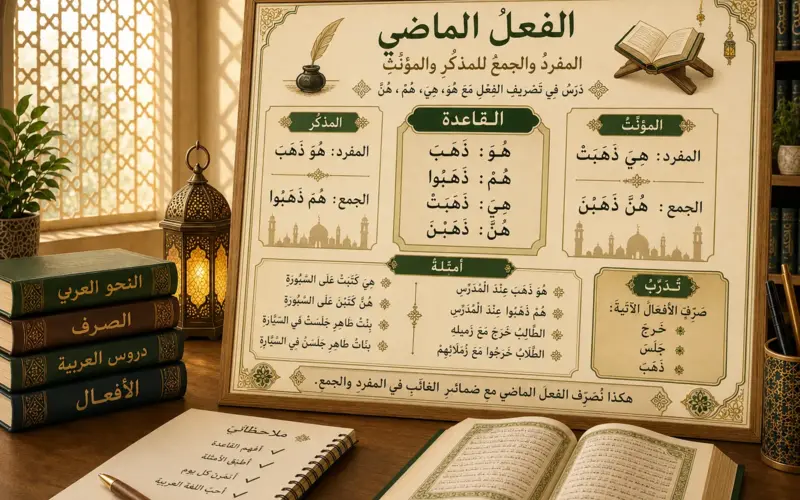 الفعلُ الماضي
المفردُ والجمعُ للمذكُرِ والمؤنَّثِ
دَرَسٌ فِي تَصْرِيفِ الفِعْلِ مَعَ هُوَ، هِيَ، هُمْ، هُنَّ
المذكُر
المفرد: هُوَ ذَهَبَ
الجمع: هُمْ ذَهَبُوا
القاعدة
هُوَ: ذَهَبَ
هُمْ: ذَهَبُوا
هِيَ: ذَهَبَتْ
هُنَّ: ذَهَبْنَ
المؤنَّثُ
المفرد: هِيَ ذَهَبَتْ
الجمع: هُنَّ ذَهَبْنَ
أمثلةُ
هُوَ ذَهَبَ عِنْدَ الْمُدَرِّسِ
هُمْ ذَهَبُوا عِنْدَ الْمُدَرِّسِ
الطَّالِبُ خَرَجَ مَعَ زَمِيلِهِ
الطُّلَّابُ خَرَجُوا مَعَ زُمَلَائِهِمْ
هِيَ كَتَبَتْ عَلَى السَّبُّورَةِ
هُنَّ كَتَبْنَ عَلَى السَّبُّورَةِ
بِنْتُ طَاهِرٍ جَلَسَتْ فِي السَّيَّارَةِ
بَنَاتُ طَاهِرٍ جَلَسْنَ فِي السَّيَّارَةِ
تَدَرَّبْ
صَرِّفِ الأَفعالَ الآتيةَ:
خَرجَ
جَلَسَ
ذَهَبَ
هكذا نُصَرِّف الفعلَ الماضي مع ضمائرِ الغائبِ في المفردِ والجمع.
النحو العربي
الصرف
دروس العربية
الأفعال
ملاحظاتي
أفهم القاعدة
أطبق الأمثلة
أتمرن كل يوم
أحب اللغة العربية